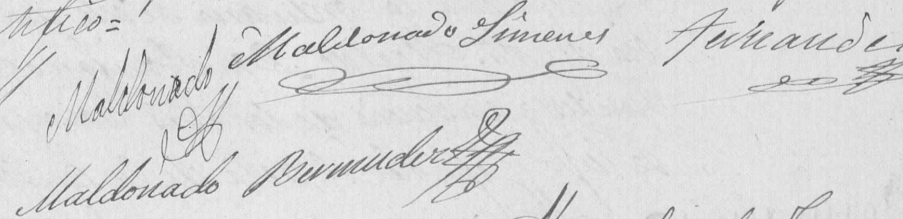 tifico=
Maldonado Maldonado Simenes Fernande
Maldonado Bermudez